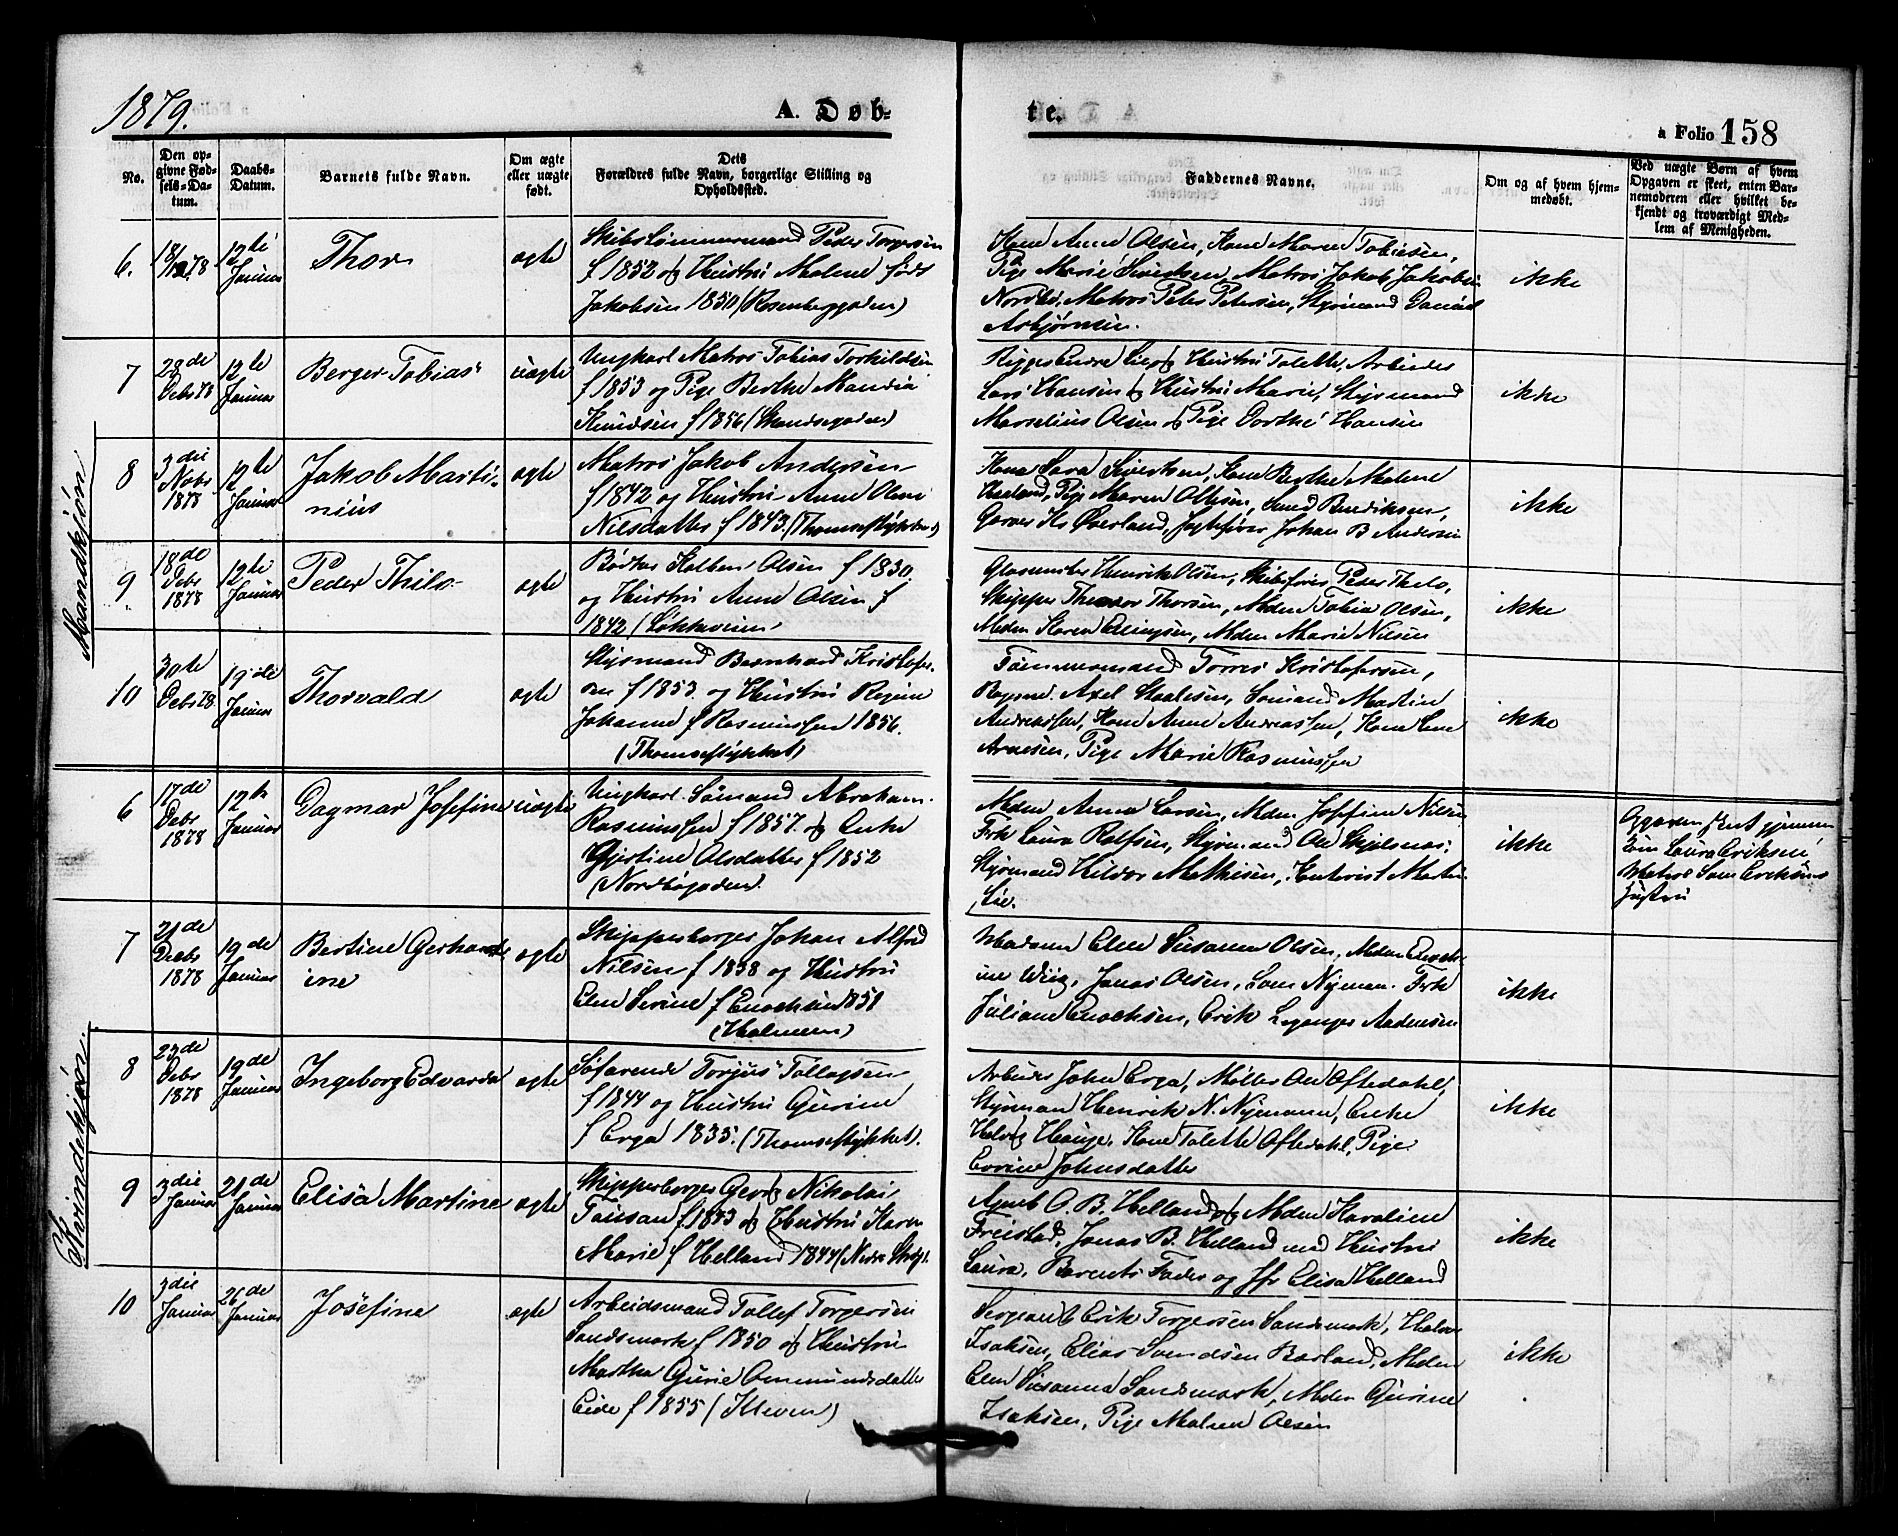 1879.
A. Døb-
te.
a Folio 158
No.
Den op-
givne Fød-
sels-Da-
tum.
Daabs-
Datum.
Barnets fulde Navn.
Om ægte
eller uægte
født.
Dets
Forældres fulde Navn, borgerlige Stilling og
Opholdssted.
Faddernes Navne.
Om og af hvem hjem-
medøbt.
Ved uægte Børn af hvem
Opgaven er skeet, enten Bar-
nemoderen eller hvilket be-
kjendt og troværdigt Med-
lem af Menigheden.
Mandkjøn
6.
12te
Januar
Thor
ægte
Skibstømmermand Peder Torgersen
f 1852 og Hustru Malene født
Jakobsen 1850 (Rosenberggaden)
Kone Anne Olsen, Kone Maren Tobiesen,
Pige Marie Sivertsen, Matros Jakob Jakobsen
Nordbø, Matros Peter Petersen, Styrmand Daniel
Asbjørnsen.
ikke
7
28de
Debr 78
12te
Januar
Berger Tobias
uægte
Ungkarl Matros Tobias Torkildsen
f 1853 og Pige Berthe
Knudsen f 1856 (Strandsgaden)
Lie og Hustru Talette, Arbeider
Lars Hansen og Hustru Marie, Styrmand
Marselius Olsen og Pige Dorthe Hansen
ikke
8
3die
Novbr
1878
12te
Januar
Jakob Marti-
nius
ægte
Matros Jakob Andersen
f 1842 og Hustru Anne Oline
Nilsdatter f 1843. (Thomsestykket)
Kone Sara Sivertsen, Kone Berthe Malene
Haaland, Pige Maren Olsen, Svend Bendiksen,
Garver Øverland, Jagtefører Johan B Andersen
ikke
9
18de
Debr
1878
12te
Januar
Peder Thilo
ægte
Bødker Kolben Olsen f 1830
og Hustru Anne Olsen f
1842 (Løkkeveien)
Glasmester Henrik Olsen, Skibsfører Peder Thelo,
Skipper Theodor Thorsen, Mdm Tobia Olsen,
Mdm Karen Ellingsen, Mdm Marie Nilsen
ikke
10
30te
Debr 78
19de
Januar
Thorvald
ægte
Styrmand Bernhard Kristofer-
sen f 1853. og Hustru Regine
Johanne f Rasmussen 1856.
(Thomsestykket)
Tømmermand Torres Kristofersen,
Axel Staalesen, Sømand Martin
Andreassen, Kone Anne Andreassen, Kone Lene
Arnesen, Pige Marie Rasmussen
ikke
Kvindekjøn
6
17de
Debr
1878
12te
Januar
Dagmar Josefine
uægte
Ungkarl Sømand Abraham
Rasmussen f 1857. og Enke
Gjertine Olsdatter f 1852
(Nordbøgaden)
Mdm Anna Larsen, Mdm Josefine Nilsen
Frk Laura Rolfsen, Styrmand Ole Skjelsnes,
Styrmand Hildor Mathisen, Kontorist Martin
Lie.
ikke
Opgaven skeet gjennem
Laura Eriksen,
Matros Sven Eriksens
Hustru
7
21de
Debr
1878
19de
Januar
Bertine Gerhard-
ine
ægte
Skipperborger Johan Alfred
Nilsen f 1838 og Hustru
Elen Serine f Enochsen 1851
(Holmen)
Madam Elen Susanne Olsen, Mdm
Wiig, Jonas Olsen, Sven Nyman. Frk
Juliane Enochsen, Erik Leganger Andersen
ikke
8
23de
Debr
1878
19de
Januar
Ingeborg Edvarda
ægte
Søfarende Torjus Tollagsen
f 1844 og Hustru Gurine
f Erga 1835. (Thomsestykket).
Arbeider John Erga, Møller Ole Oftedahl,
Styrman Henrik N. Nyemann, Enke
Helvig Hauge, Kone Talette Oftedahl, Pige
Johnsdatter
ikke
9
3die
Januar
21de
Januar
Elisa Martine
ægte
Skipperborger Georg Nikolai
Tausan f 1843 og Hustru Karen
Marie f Helland 1844 (Nedre Strdgt.
Agent O. B. Helland og Mdm Karoline
Freistad, Jonas B. Helland med Hustru
Laura, Barnets Fader og Jfr Elisa Helland
ikke
10
3die
Januar
26de
Januar
Josefine
ægte
Arbeidsmand Tollef Torgersen
Sandsmark f 1850 og Hustru
Martha Gurie Ommundsdatter
Eide f 1855 (Jelleveien)
Sergeant Erik Torgersen Sandsmark, Halvor
Isaksen, Elias Svendsen Barland, Mdm
Elen Susanne Sandsmark, Mdm Gurine
Isaksen, Pige Malene Olsen
ikke